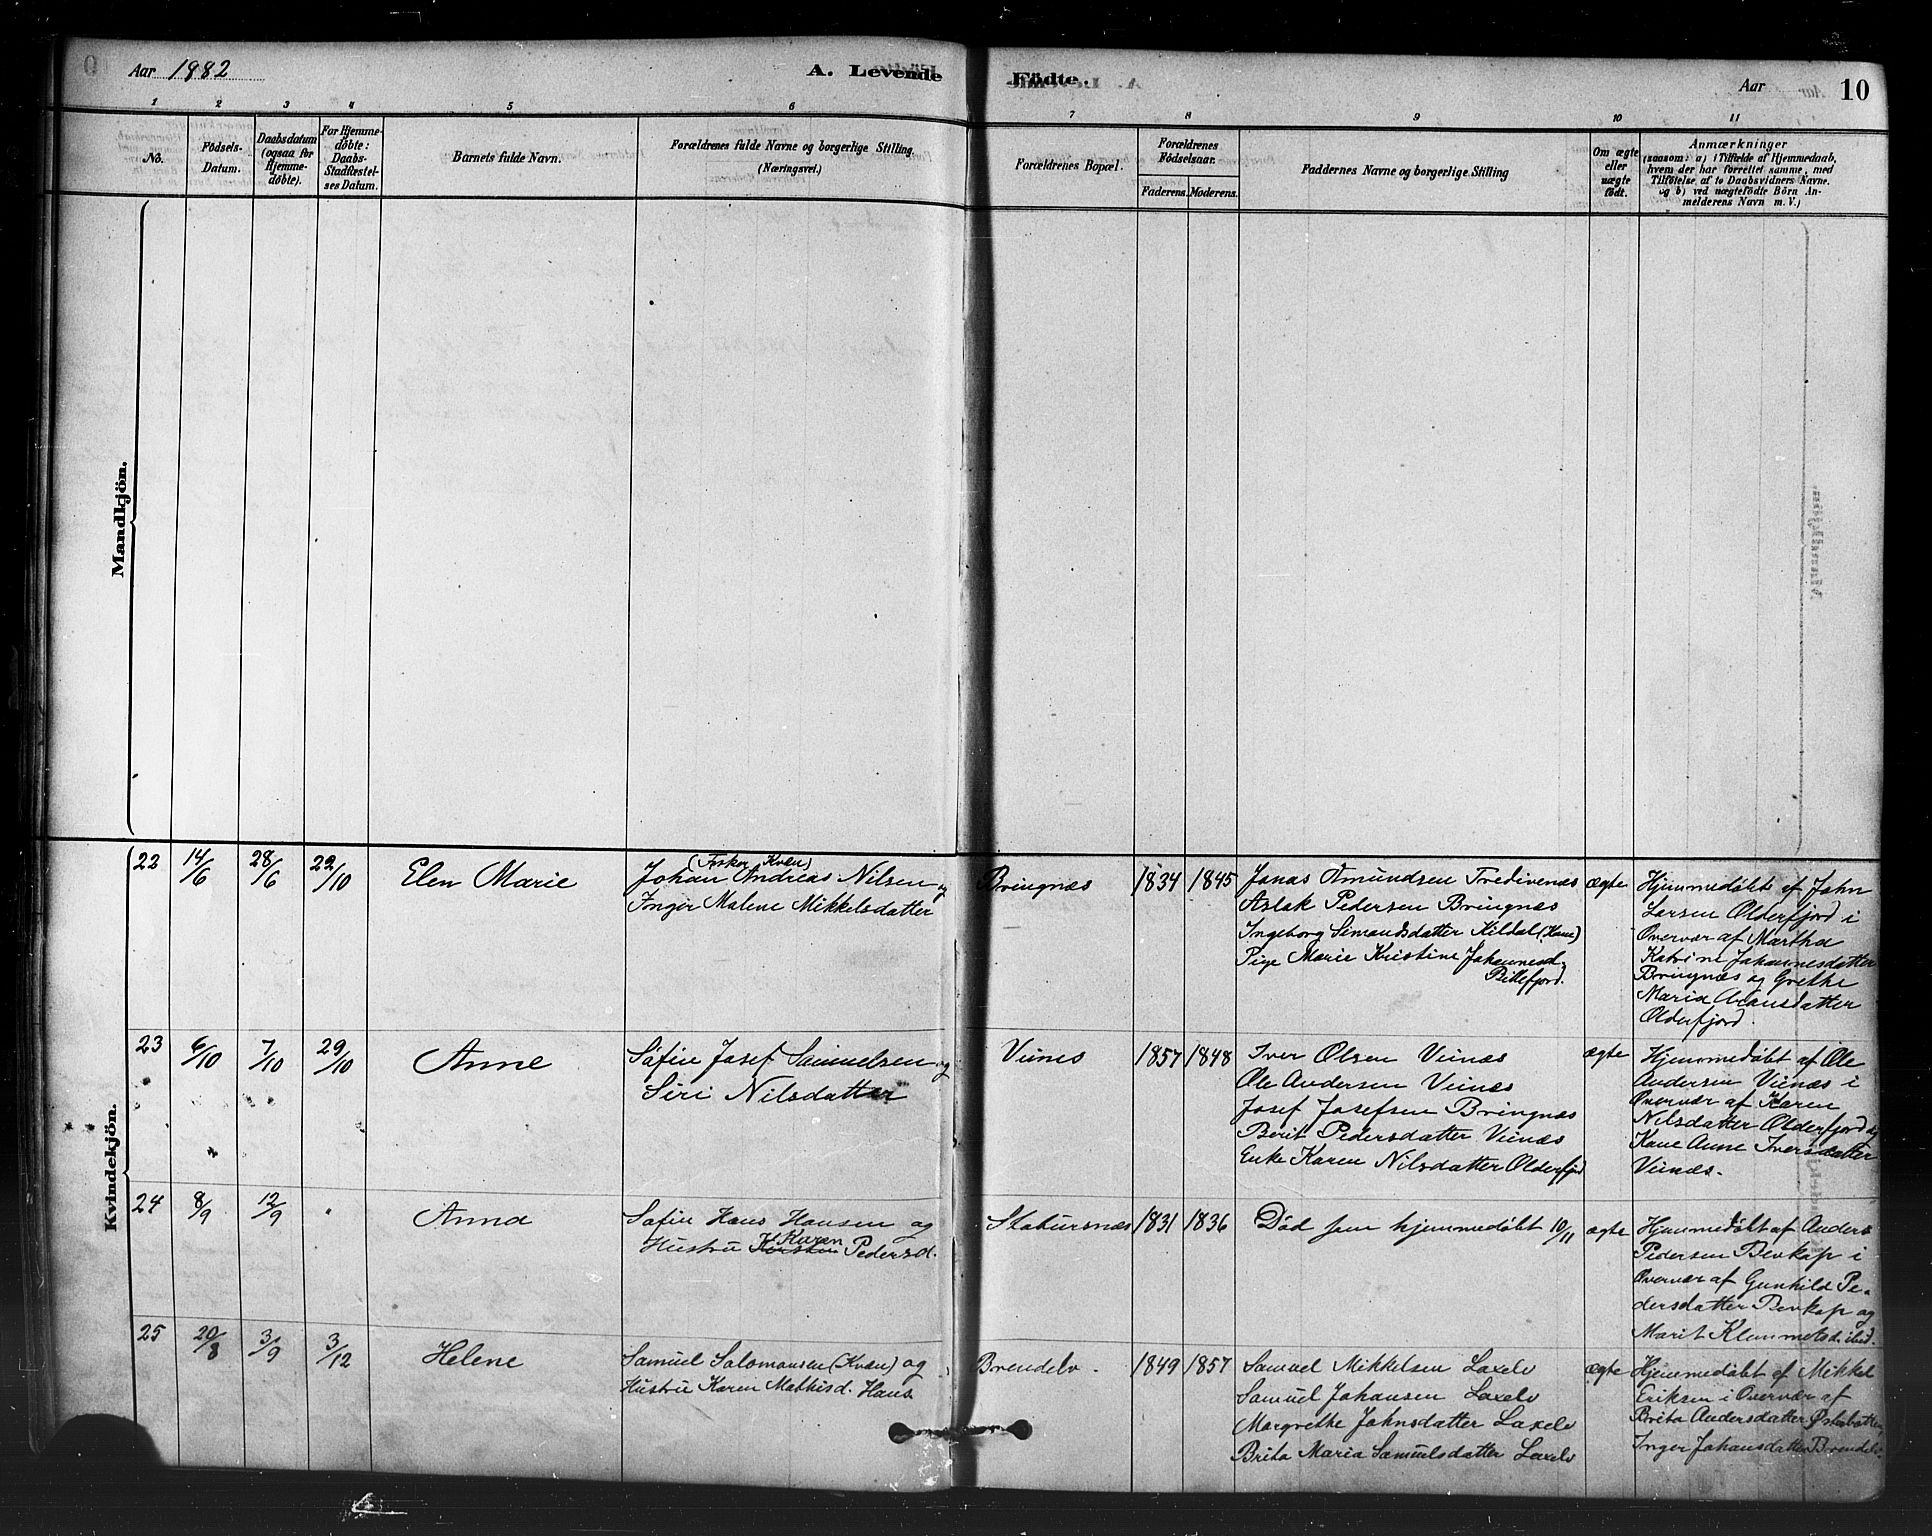 Aar 1882
A. Levende
Födte.
Aar
10
1 2 3 4 5 6 7 8 9 10 11
No.
Födsels-
Datum.
Daabsdatum
(ogsaa for
Hjemme-
døbte).
For Hjemme-
døbte:
Daabs-
Stadfæstel-
ses Datum.
Barnets fulde Navn.
Forældrenes fulde Navne og borgerlige Stilling.
(Næringsvei.)
Forældrenes Bopæl.
Forældrenes
Födselsaar.
Faderens. Moderens.
Faddernes Navne og borgerlige Stilling
Om ægte
eller
uægte
født.
Anmærkninger
(saasom: a) i Tilfælde af Hjemmedaab,
hvem der har forrettet samme, med
Tilföielse af to Daabsvidners Navne.
og b) ved uægtefödte Börn An-
melderens Navn m.V.)
Mandkjön.
Kvindekjön.
22 14/6 28/6 22/10 Elen Marie
(Fisker Kvæn)
Johan Andreas Nilsen og
Inger Malene Mikkelsdatter
Bringnæs 1834 1845
Jonas Amundsen Tredivenæs
Aslak Pedersen Bringnæs
Ingeborg Simonsdatter Kildal (Kone)
Pige Marie Kristine Johannesd.
Billefjord.
ægte
Hjemmedøbt af John
Larsen Olderfjord i
Overvær af Martha
Katrine Johannesdatter
Bringnæs og Grethe
Maria datter
Olderfjord.
23 6/10 7/10 29/10 Anne
Søfin Josef Samuelsen og
Siri Nilsdatter
Veines 1857 1848
Iver Olsen Veinæs
Ole Andersen Veinæs
Josef Josefsen Bringnæs
Berit Pedersdatter Veinæs
Enke Karen Nilsdatter Olderfjord
ægte
Hjemmedøbt af Ole
Andersen Veinæs i
Overvær af Karen
Nilsdatter Olderfjord og
Kone Anne Iversdatter
Veinæs.
24 8/9 12/9 " Anna
Søfin Hans Hansen og
Karen
Hustru Kirsten Pedersd.
Statursnæs 1831 1836
Død som hjemmedøbt 10/11
ægte
Hjemmedøbt af Anders
Pedersen Bevkop i
Overvær af Gunhild Pe-
dersdatter Bevkop og
Marit Klemmetsd. ibid.
25 20/8 3/9 3/12 Helene
Samuel Salomonsen (Kvæn) og
Hustru Karen Mathisd. Hans
Brendelv. 1849 1857
Samuel Mikkelsen Laxelv
Samuel Johansen Laxelv
Margrethe Johnsdatter Laxelv
Brita Maria Samuelsdatter Laxelv
ægte
Hjemmedøbt af Mikkel
Eriksen i Overvær af
Brita Andersdatter Østerbotten,
Inger Johansdatter Brendelv.